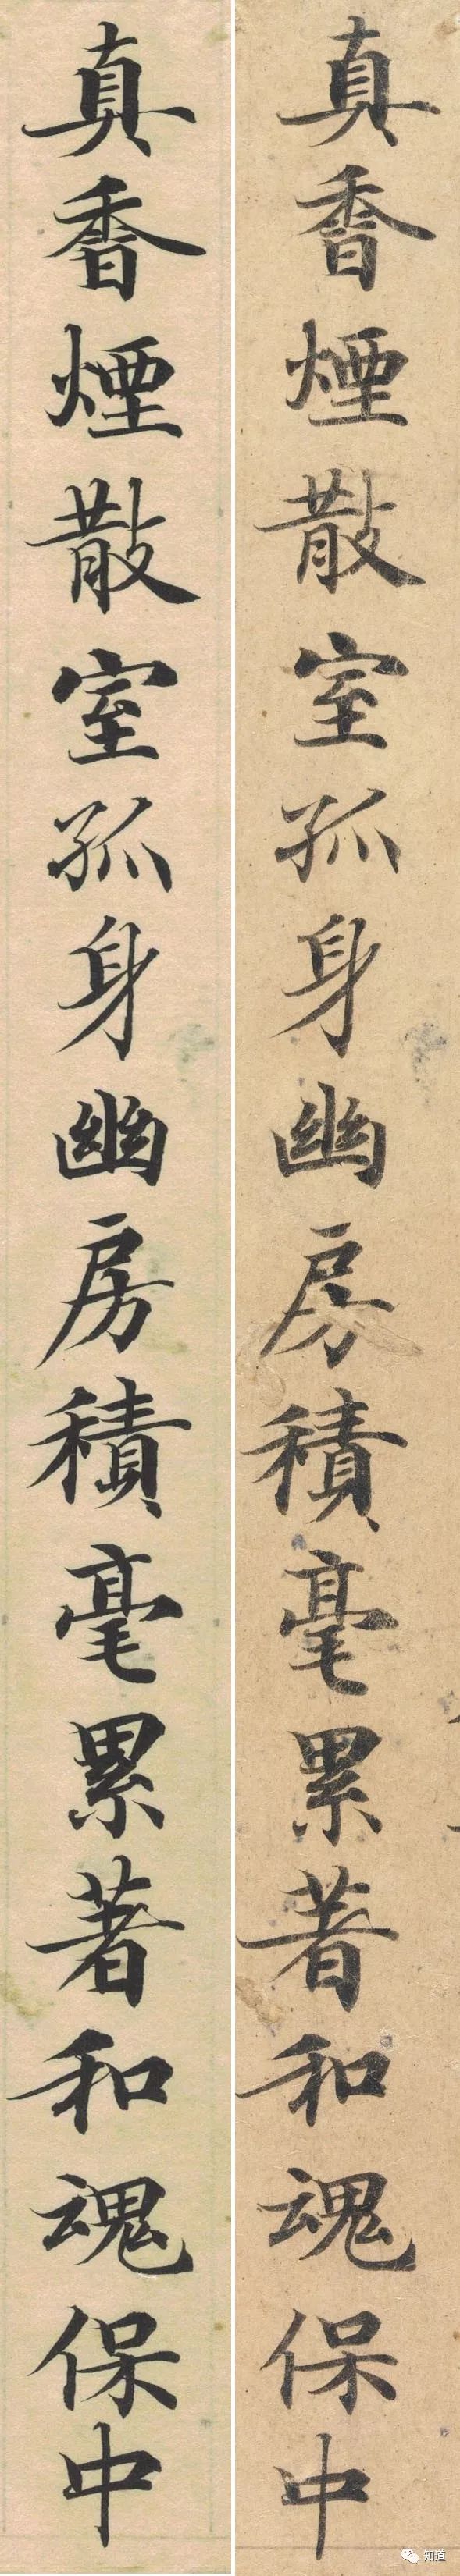 真香煙散室孤身幽房積毫累著和魂保中
真香煙散室孤身幽房積毫累著和魂保中
知道